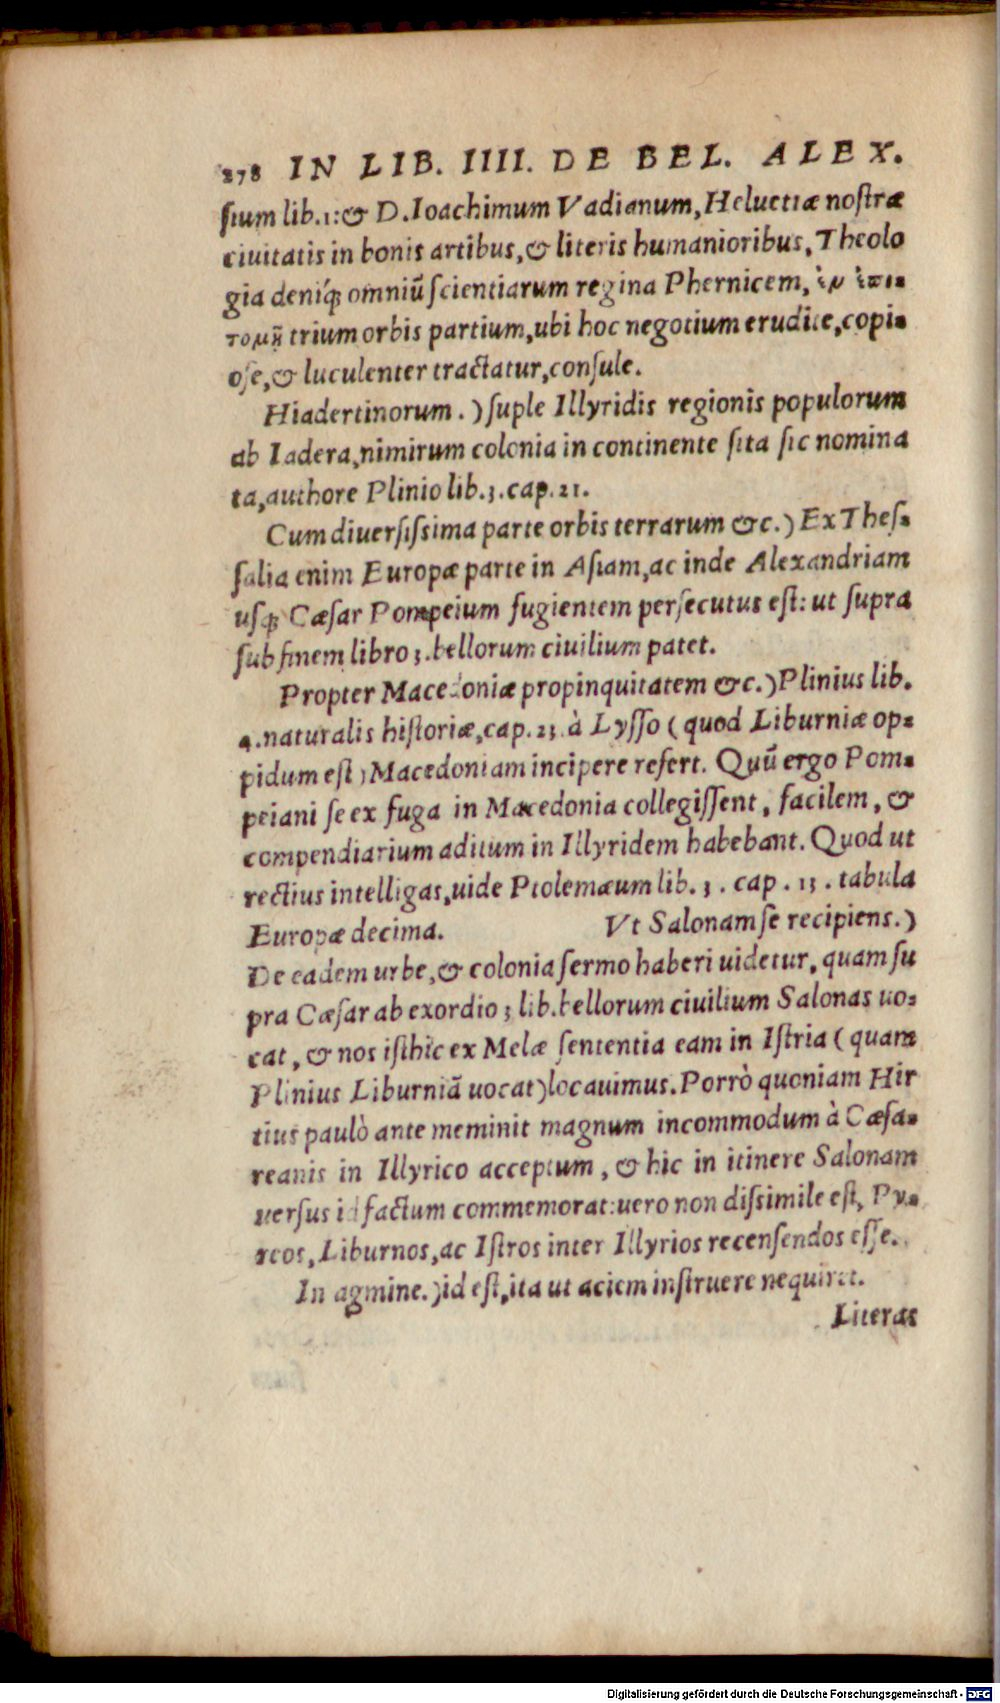 278 IN LIB. IIII. DE BEL. ALEX.
ſium lib.1:& D.Ioachimum Vadianum,Heluetiæ noſtræ
ciuitatis in bonis artibus,& literis humanioribus,Theolo
gia deniq́; omniũ ſcientiarum regina Phernicem, ἐν ἐπι-
τομῇ trium orbis partium,ubi hoc negotium erudite,copi-
ose,& luculenter tractatur,conſule.
Hiadertinorum.) ſuple Illyridis regionis populorum
ab Iadera,nimirum colonia in continente ſita ſic nomina
ta,authore Plinio lib.3.cap.21.
Cum diuerſiſsima parte orbis terrarum &c.) Ex Theſ-
ſalia enim Europæ parte in Aſiam,ac inde Alexandriam
uſq; Cæſar Pompeium fugientem perſecutus eſt: ut ſupra
ſub finem libro 3.bellorum ciuilium patet.
Propter Macedoniæ propinquitatem &c.) Plinius lib.
4.naturalis hiſtoriæ,cap.23.à Lyſſo (quod Liburniæ op-
pidum eſt) Macedoniam incipere refert. Quũ ergo Pom-
peiani ſe ex fuga in Macedonia collegiſſent, facilem, &
compendiarium aditum in Illyridem habebant. Quod ut
rectius intelligas,uide Ptolemæum lib. 3. cap. 13. tabula
Europæ decima. Vt Salonam ſe recipiens.)
De eadem urbe,& colonia ſermo haberi uidetur, quam ſu
pra Cæſar ab exordio 3 lib.bellorum ciuilium Salonas uo-
cat, & nos iſthic ex Melæ ſententia eam in Iſtria (quam
Plinius Liburniã uocat) locauimus. Porrò quoniam Hir
tius paulò ante meminit magnum incommodum à Cæſa-
reanis in Illyrico acceptum, & hic in itinere Salonam
uerſus id factum commemorat: uero non diſsimile eſt, Py-
reos, Liburnos, ac Iſtros inter Illyrios recenſendos eſſe.
In agmine.) id eſt,ita ut aciem inſtruere nequiret.
Literas
Digitalisierung gefördert durch die Deutsche Forschungsgemeinschaft - DFG